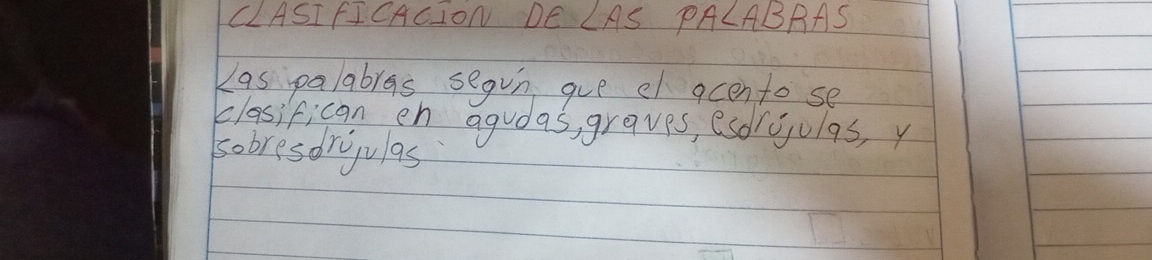 CLASIFICACIÓN DE LAS PALABRAS
Las palabras según que el acento se
clasifican en agudas, graves, esdrújulas, y
sobresdrújulas